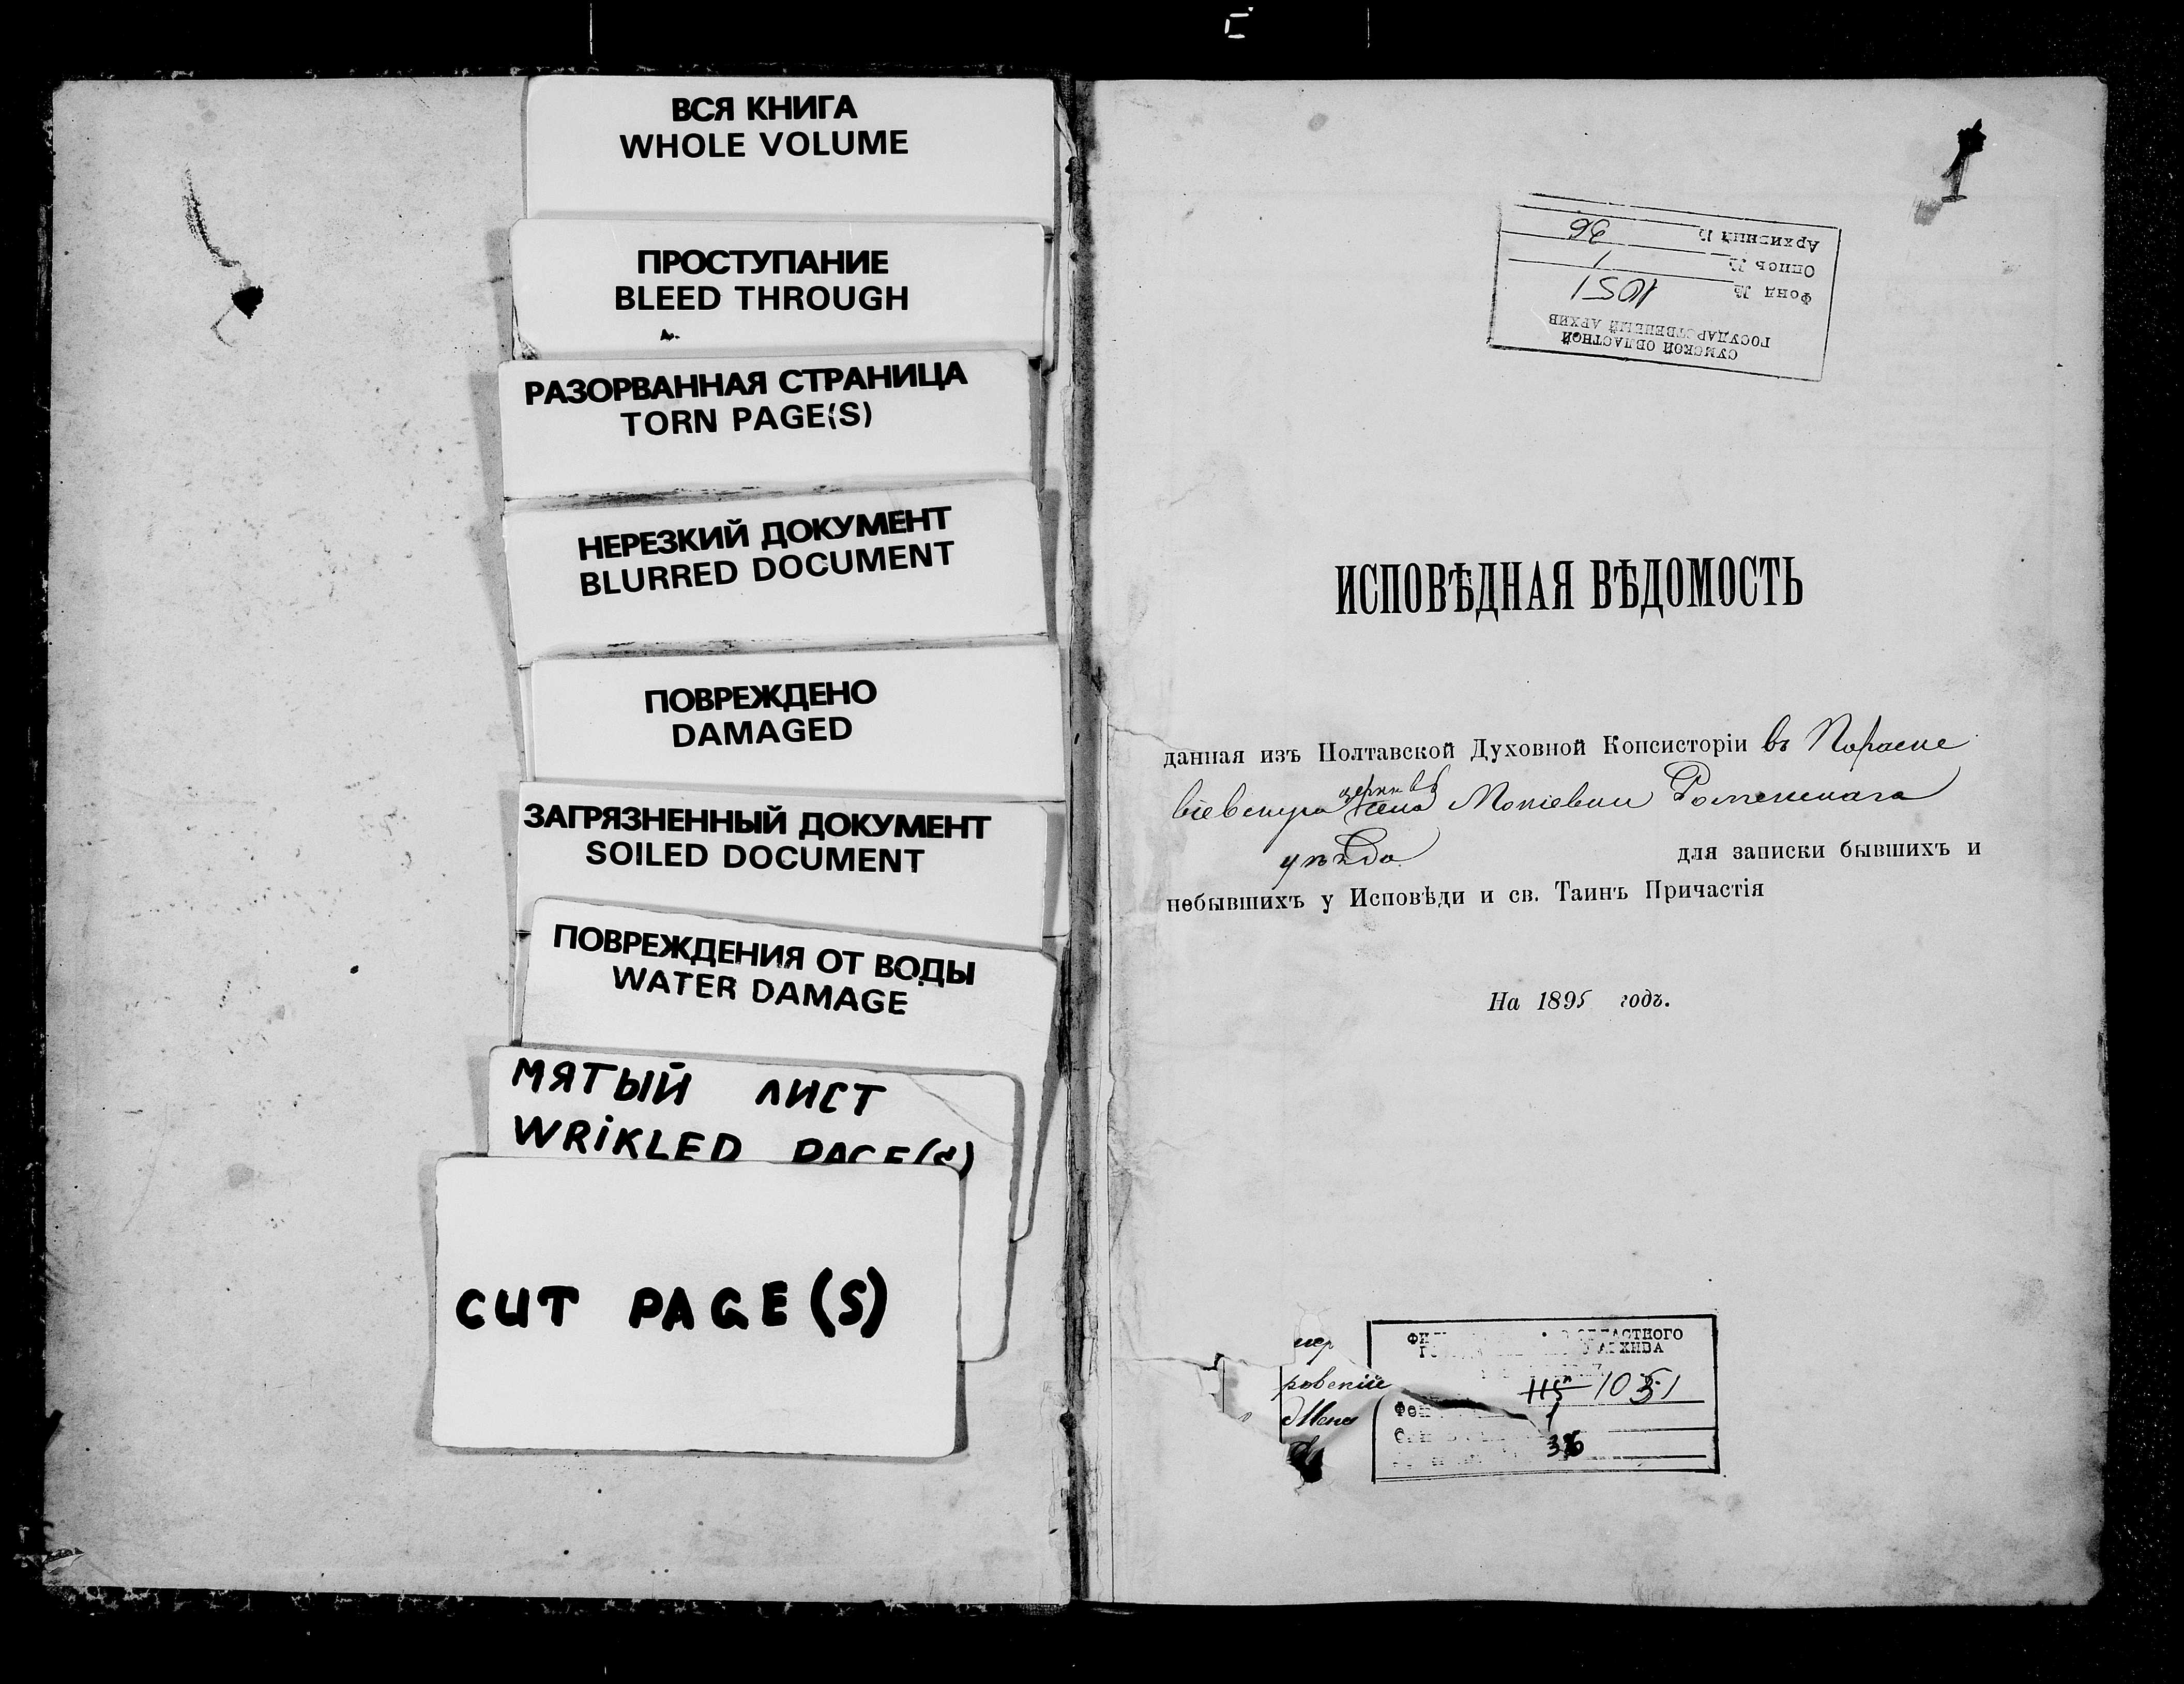 ВСЯ КНИГА
WHOLE VOLUME
ПРОСТУПАНИЕ
BLEED THROUGH
РАЗОРВАННАЯ СТРАНИЦА
TORN PAGE(S)
НЕРЕЗКИЙ ДОКУМЕНТ
BLURRED DOCUMENT
ПОВРЕЖДЕНО
DAMAGED
ЗАГРЯЗНЕННЫЙ ДОКУМЕНТ
SOILED DOCUMENT
ПОВРЕЖДЕНИЯ ОТ ВОДЫ
WATER DAMAGE
МЯТЫЙ ЛИСТ
WRiKLED PAGE(S)
CUT PAGE(S)
СУМСКОЙ ОБЛАСТНОЙ
ГОСУДАРСТВЕННЫЙ АРХИВ
Фонд № 1051
Опись № 1
Архивный № 36
ИСПОВѢДНАЯ ВѢДОМОСТЬ
данная изъ Полтавской Духовной Консисторіи въ Параске
віевскую церковь села Моисевки Роменскаго
уѣзда для записки бывшихъ и
небывшихъ у Исповѣди и св. Таинъ Причастія
На 1895 годъ.
ОБЛАСТНОГО
АРХИВА
115 1051
Фон 1
36